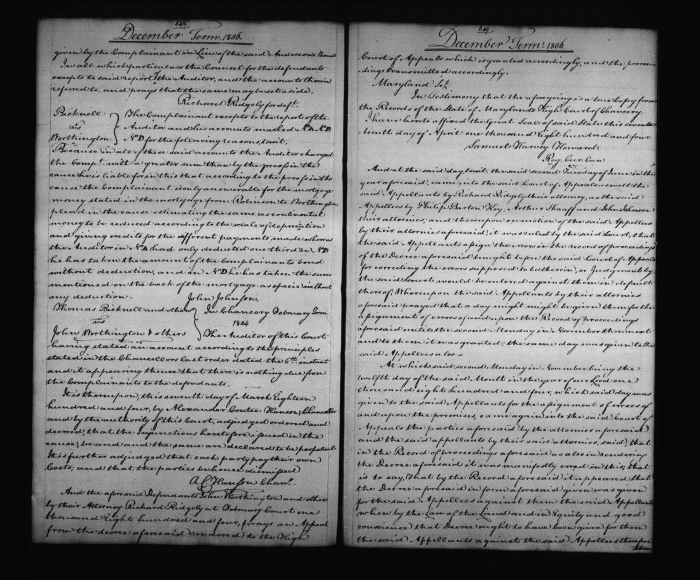 548.
December Term 1806.
given by the Complainant in Lieu of the said Anderson's Bond
In all which particulars the Counsel for the defendants
excepts to said report of the Auditor, and the accounts therein
referred to, and prays that the same may be set aside.
Richard Ridgely for defts.
Bicknell
vs
Worthington
The Complainant excepts to the report of the
Auditor and his accounts marked
for the following reasons, towit,
Because in all of the said accounts the Auditor charged
the Compt. with a greater sum than by the proof in the
cause he is liable for in this that according to the proof in the
cause the Complainant is only answerable for the mortgage
money stated in the mortgage from Robinson to Worthington
placed in the cause estimating the same as continental
money to be reduced according to the scale of depreciation
and giving credit for the different payments made whereas
the Auditor in No. A had only deducted one third in No. B
he has taken the amount of the Complainants bond
without deduction, and in No. D he has taken the sum
mentioned on the back of the mortgage as specie without
any deduction.
John Johnson,
Thomas Bicknell and others
vs
John Worthington & others
In Chancery February Term
1804
The Auditor of this Court
having stated an account according to the principles
stated in the Chancellors last order dated the 6th instant
and it appearing thence that there is nothing due from
the Complainants to the defendants.
It is thereupon, this seventh day of March Eighteen
hundred and four, by Alexander Contee Hanson, Chancellor
and by the authority of this Court, adjudged ordered and
decreed, that the Injunctions heretofore issued in the
cause, be and and the same are declared to be perpetual
It is further adjudged that each party pay their own
Costs, and that the parties be hence dismissed
A. C. Hanson Chanr.
And the aforesaid Defendants John Worthington and others
by their Attorney Richard Ridgely at February Court one
thousand Eight hundred and four, prays an Appeal
from the decree aforesaid rendered to the High
549.
December Term 1806.
Court of Appeals which is granted accordingly, and the procee-
dings transmitted accordingly.
Maryland Sct.
In testimony that the aforegoing is a true Copy from
the Records of the State of Maryland's High Court of Chancery
I have hereto affixed the great Seal of said State this seven
teenth day of April one thousand Eight hundred and four
Samuel Harvey Howard
Reg. Cur. Can.
And at the said day, towit, the said second Tuesday of June in the
year aforesaid, came into the said Court of Appeals as well the
said Appellants by Richard Ridgely their attorney, as the said
Appellees by Philip Barton Key, Arthur Shaaff and John Johnson
their attornies, and thereupon on motion of the said Appellees
by their attornies aforesaid, it was ruled by the said Court, that
the said Appellants assign the errors in the record of proceedings
of the Decree aforesaid brought before the said Court of Appeals
for correcting the errors supposed to be therein, or Judgment by
the said Court, would be entered against them in default
thereof. Whereupon the said Appellants by their attornies
aforesaid prayed that a day might be given them for the
assignments of errors of and upon the Record of proceedings
aforesaid until the second Monday in November then next
and to them it was granted; the same day was given to the
said Appellees also.
At which said second Monday in November being the
twelfth day of the said Month in the year of our Lord one
thousand eight hundred and four, which said day was
given to the said Appellants for the assignment of errors of
and upon the premises, came again to the said Court of
Appeals the parties aforesaid by the attornies aforesaid
and the said appellants by their said attornies, said, that
in the Record of proceedings aforesaid as also in rendering
the Decree aforesaid it was manifestly erred in this, that
is to say, that by the Record aforesaid it appeared that
the Decree aforesaid in form aforesaid given was given
for the said Appellees against them the said Appellants
when by the Law of the Land and in Equity and good
conscience that Decree ought to have been given for them
the said Appellants against the said Appellees therefore